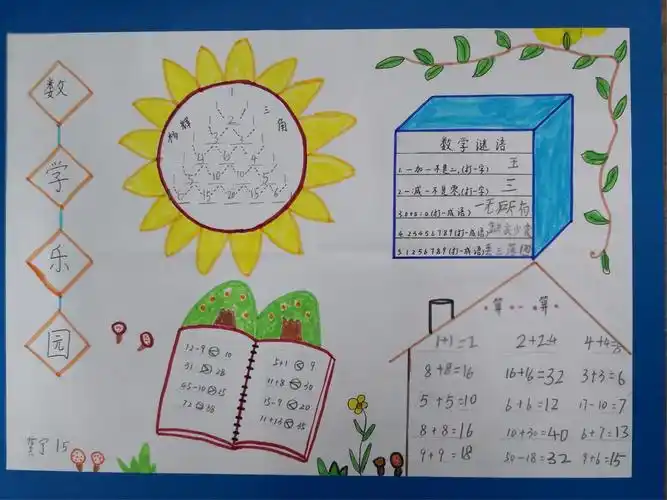 数
学
乐
园
杨辉三角
1
1 2 1
1 3 3 1
1 4 6 4 1
1 5 10 10 5 1
1 6 15 20 15 6 1
数学谜语
1.一加一不是二.(打一字) 王
2.一减一不是零(打一字) 三
3.0000.(打一成语) 一无所有
4.23456789(打一成语) 缺衣少食
5.1256789(打一成语) 丢三落四
12-9 < 10
31 > 28
45-10 > 25
72 > 38
5+1 < 9
11+8 < 30
15-9 < 20
算一算
1+1=2 2+2=4 4+4=8
8+8=16 16+16=32 3+3=6
5+5=10 6+6=12 17-10=7
8+8=16 10+30=40 6+7=13
9+9=18 50-18=32 9+6=15